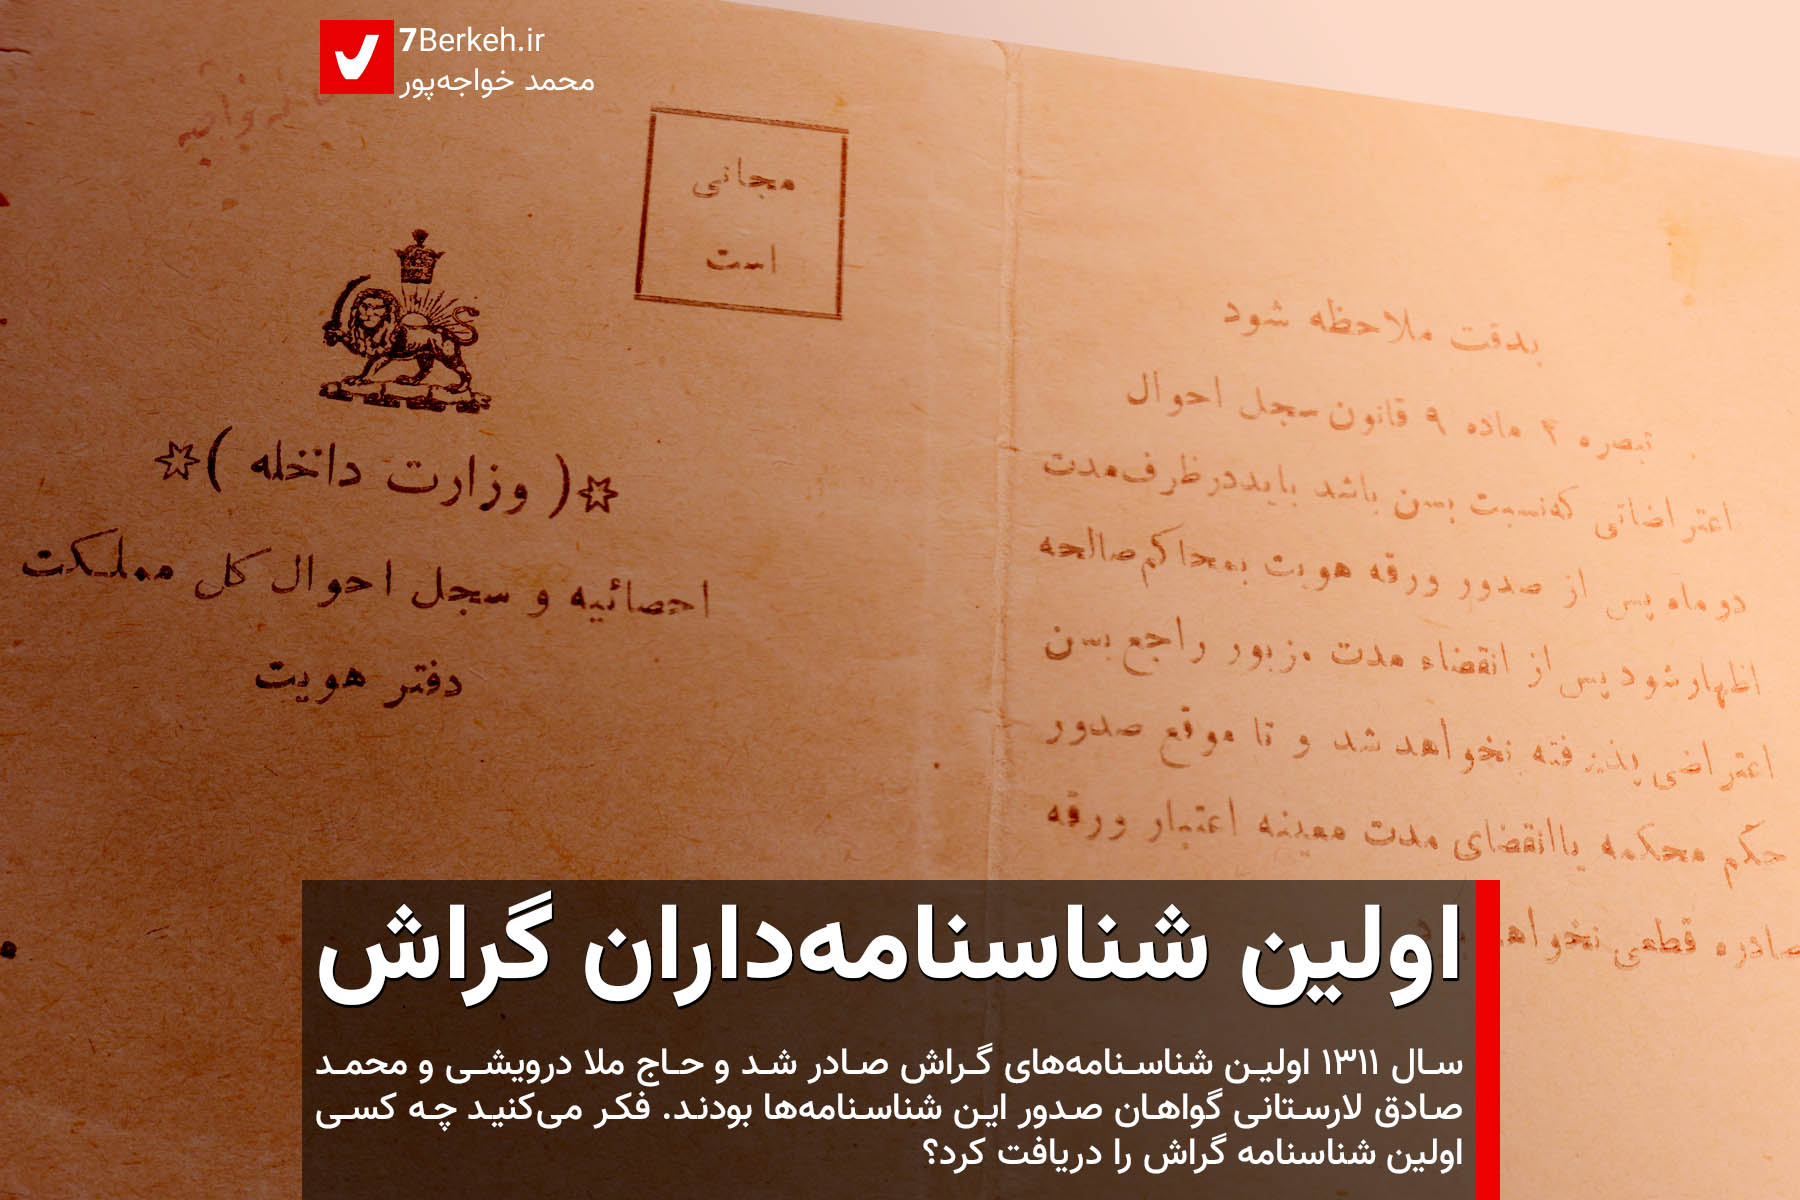 7Berkeh.ir
محمد خواجه‌پور
مجانی
است
وزارت داخله
احصائیه و سجل احوال کل مملکت
دفتر هویت
بدقت ملاحظه شود
تبصره ۴ ماده ۹ قانون سجل احوال
اعتراضاتی که‌نسبت بسن باشد بایددرظرف‌مدت
دو ماه پس از صدور ورقه هویت بمحاکم‌صالحه
اظهارشود پس از انقضاء مدت مزبور راجع بسن
اعتراضی پذیرفته نخواهد شد و تا موقع صدور
حکم محکمه یاانقضای مدت معینه اعتبار ورقه
صادره قطعی
اولین شناسنامه‌داران گراش
سال ۱۳۱۱ اولین شناسنامه‌های گراش صادر شد و حاج ملا درویشی و محمد
صادق لارستانی گواهان صدور این شناسنامه‌ها بودند. فکر می‌کنید چه کسی
اولین شناسنامه گراش را دریافت کرد؟